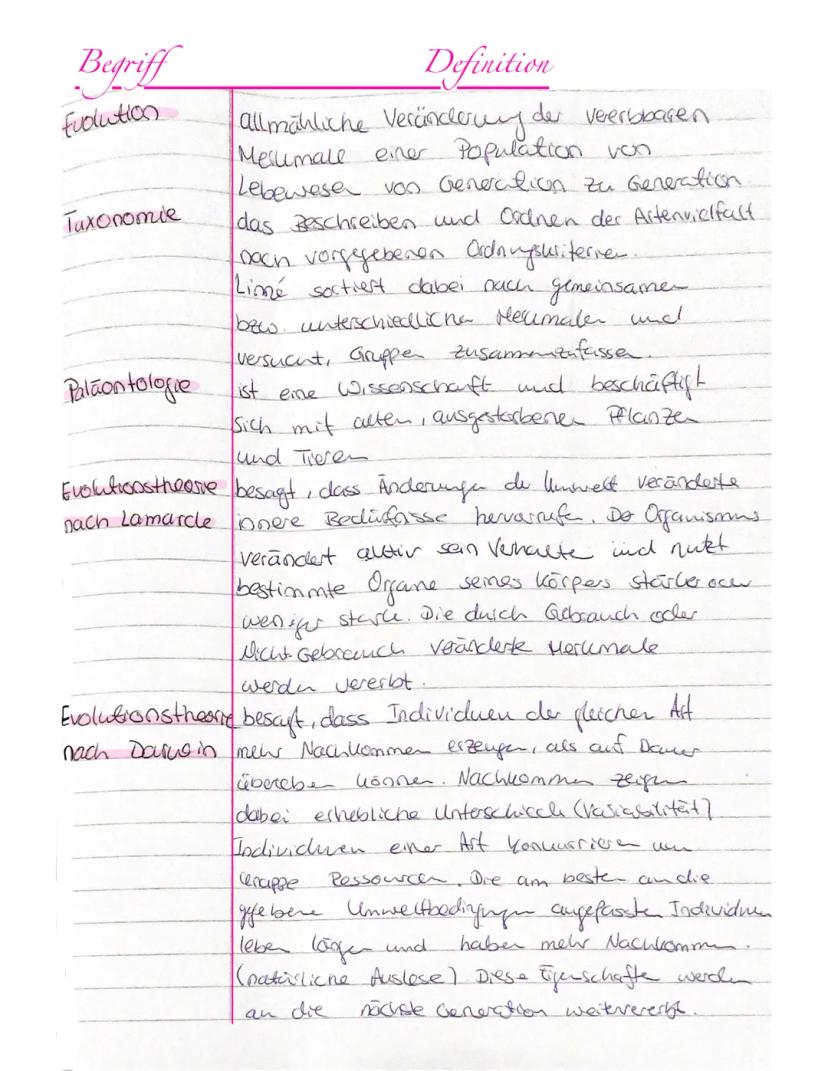 Begriff Definition
Evolution allmähliche Veränderung der vererbbaren
Merkmale einer Population von
Lebewesen von Generation zu Generation
Taxonomie das Beschreiben und Ordnen der Artenvielfalt
nach vorgegebenen Ordnungskriterien.
Linné sortiert dabei nach gemeinsamen
bzw. unterschiedlichen Merkmalen und
versucht, Gruppen zusammenzufassen.
Paläontologie ist eine Wissenschaft und beschäftigt
sich mit alten, ausgestorbenen Pflanzen
und Tieren
Evolutionstheorie besagt, dass Änderungen der Umwelt veränderte
nach Lamarck innere Bedürfnisse hervorrufen. Der Organismus
verändert aktiv sein Verhalten und nutzt
bestimmte Organe seines Körpers stärker oder
weniger stark. Die durch Gebrauch oder
Nicht Gebrauch veränderte Merkmale
werden vererbt.
Evolutionstheorie besagt, dass Individuen der gleichen Art
nach Darwin mehr Nachkommen erzeugen, als auf Dauer
überleben können. Nachkommen zeigen
dabei erhebliche Unterschiede (Variabilität)
Individuen einer Art konkurrieren um
knappe Ressourcen. Die am besten an die
gegebene Umweltbedingungen angepassten Individuen
leben länger und haben mehr Nachkommen.
(natürliche Auslese). Diese Eigenschaften werden
an die nächste Generation weitervererbt.